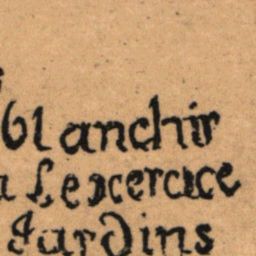 blanchir
a Lexercice
Jardins